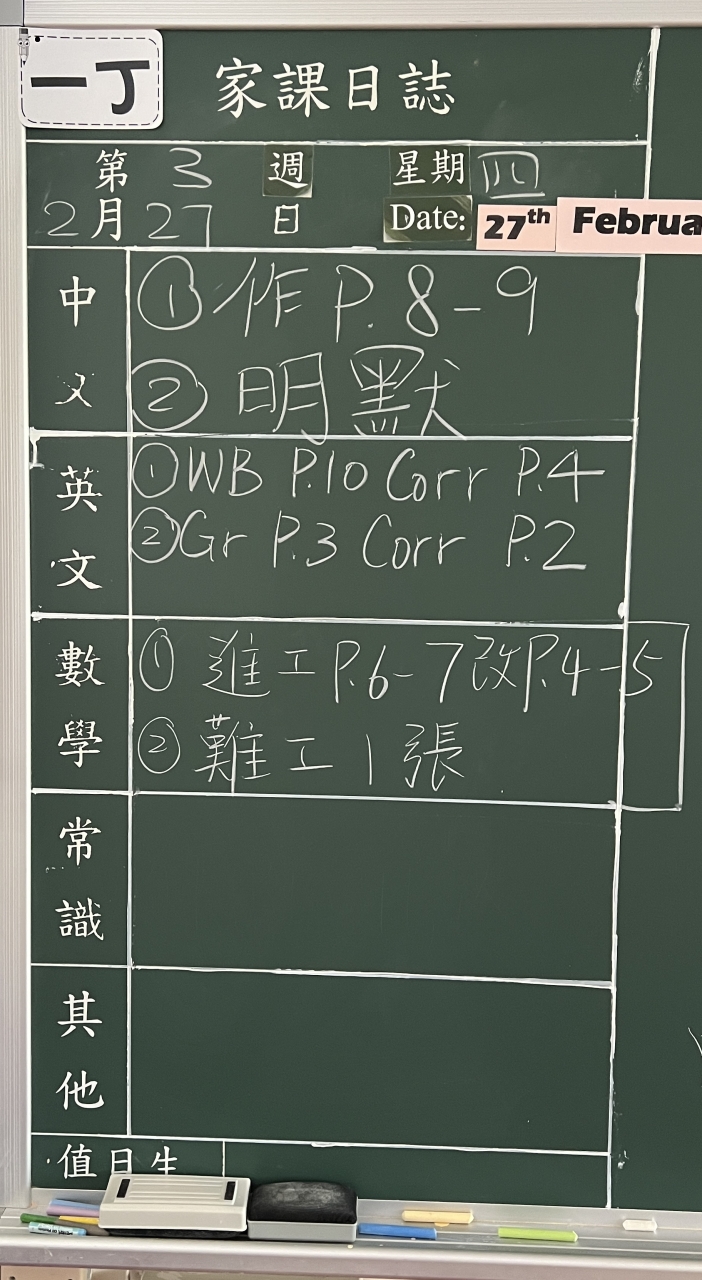 一丁
家課日誌
第 3 週 星期 四
2月27日 Date: 27th Februa
中文
① 作 P. 8-9
② 明默
英文
① WB P.10 Corr P.4
② Gr P.3 Corr P.2
數學
① 進工 P.6-7 改 P.4-5
② 難工 1 張
常識
其他
值日生